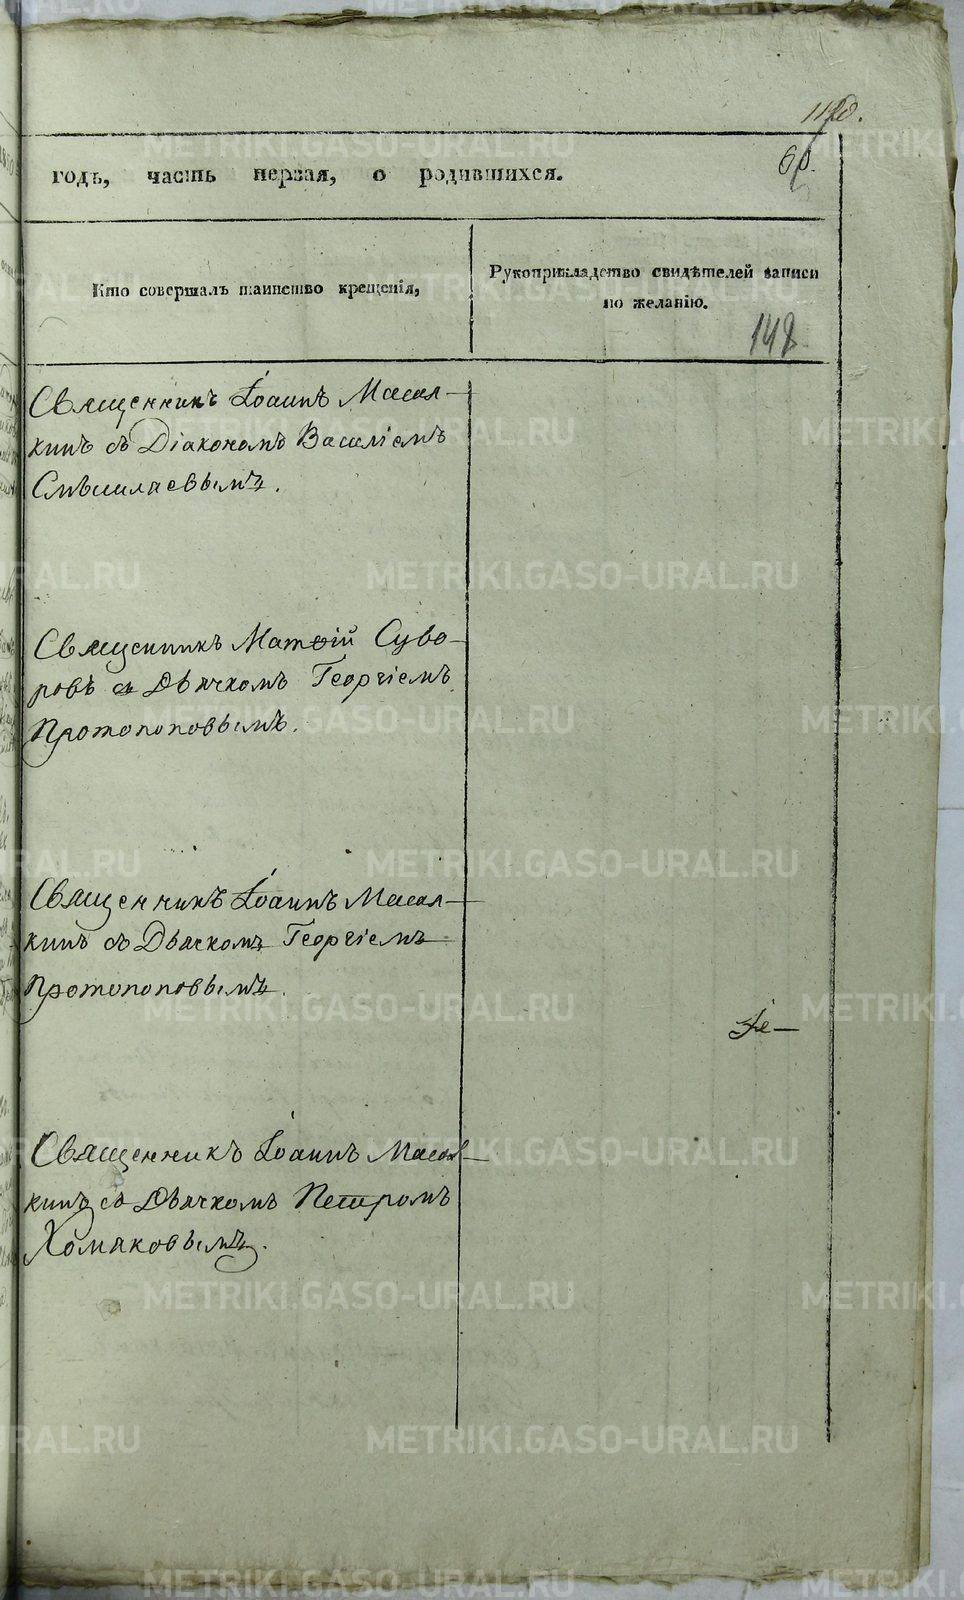 60.
годъ, часть первая, о родившихся.
Кто совершалъ таинство крещенія,
Рукоприкладство свидѣтелей записи
по желанію.
148
Священникъ Іоаннъ Масал-
кинъ съ Діакономъ Василіемъ
Смышляевымъ.
Священникъ Матѳій Суво-
ровъ съ Дьячкомъ Георгіемъ
Протопоповымъ.
Священникъ Іоаннъ Масал-
кинъ съ Дьячкомъ Георгіемъ
Протопоповымъ.
Священникъ Іоаннъ Масал-
кинъ съ Дьячкомъ Петромъ
Хомяковымъ.
METRIKI.GASO-URAL.RU